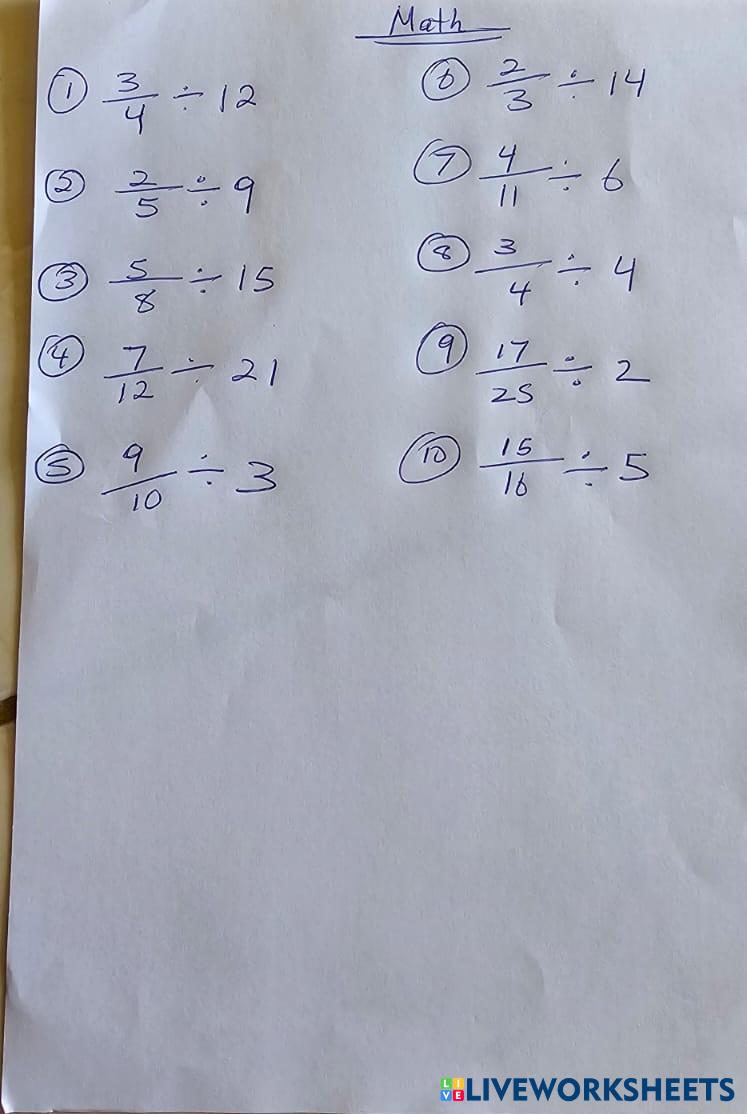 Math
① 3/4 ÷ 12
② 2/5 ÷ 9
③ 5/8 ÷ 15
④ 7/12 ÷ 21
⑤ 9/10 ÷ 3
⑥ 2/3 ÷ 14
⑦ 4/11 ÷ 6
⑧ 3/4 ÷ 4
⑨ 17/25 ÷ 2
⑩ 15/16 ÷ 5
LIVE LIVEWORKSHEETS